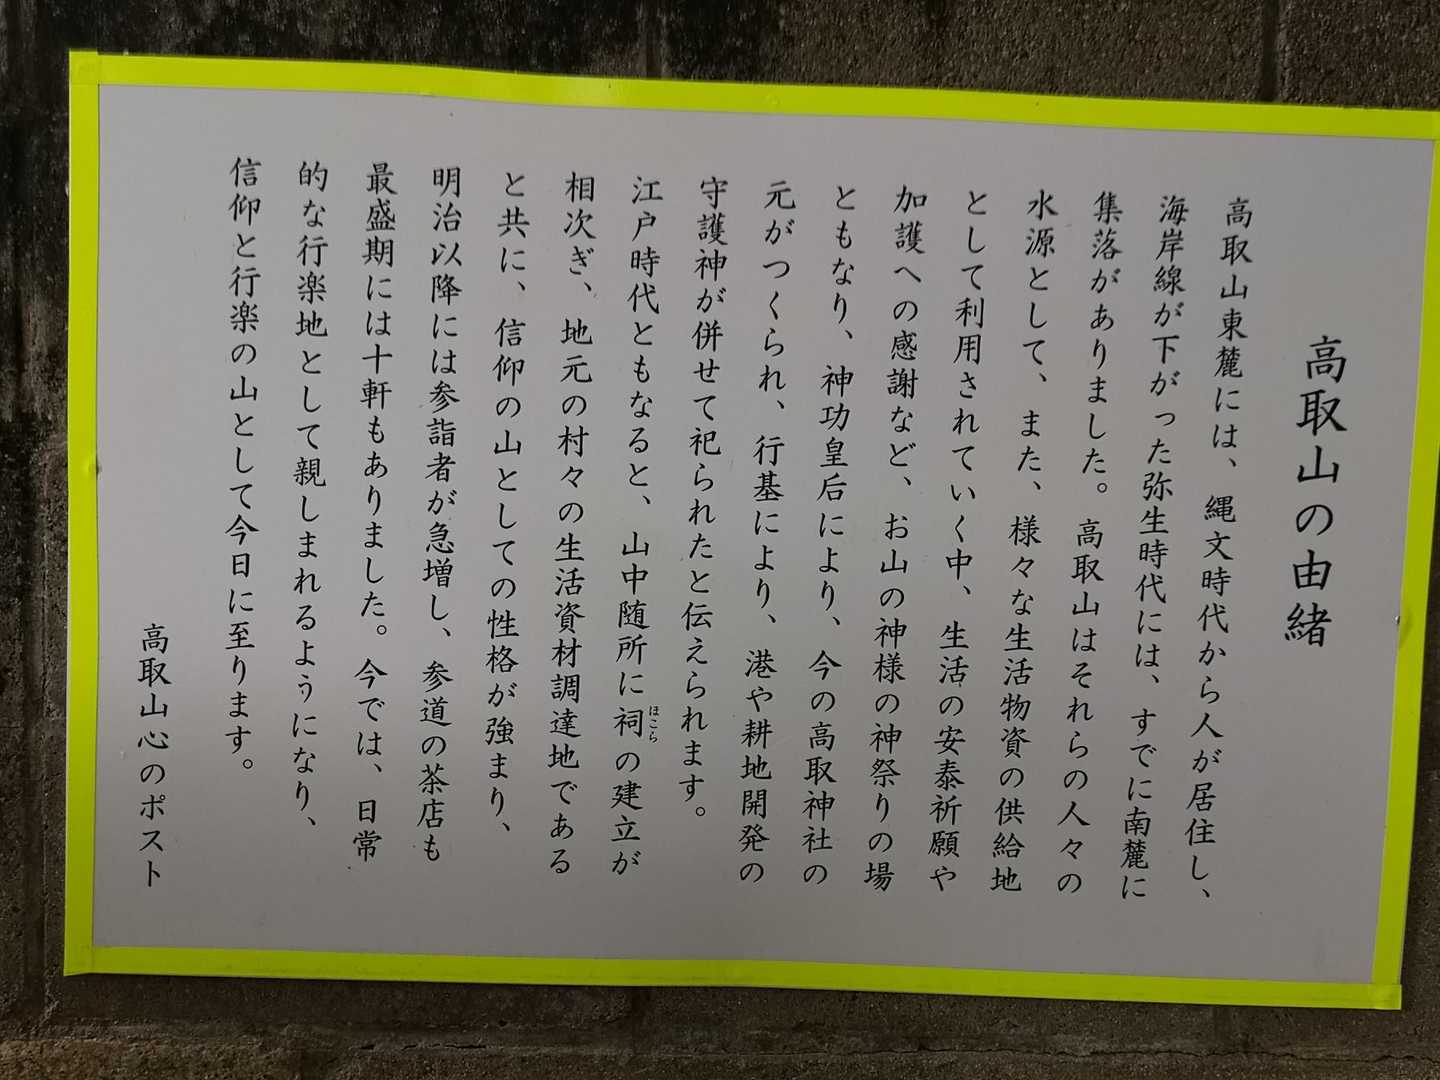 高取山の由緒
高取山東麓には、縄文時代から人が居住し、
海岸線が下がった弥生時代には、すでに南麓に
集落がありました。高取山はそれらの人々の
水源として、また、様々な生活物資の供給地
として利用されていく中、生活の安泰祈願や
加護への感謝など、お山の神様の神祭りの場
ともなり、神功皇后により、今の高取神社の
元がつくられ、行基により、港や耕地開発の
守護神が併せて祀られたと伝えられます。
江戸時代ともなると、山中随所に祠ほこらの建立が
相次ぎ、地元の村々の生活資材調達地である
と共に、信仰の山としての性格が強まり、
明治以降には参詣者が急増し、参道の茶店も
最盛期には十軒もありました。今では、日常
的な行楽地として親しまれるようになり、
信仰と行楽の山として今日に至ります。
高取山心のポスト